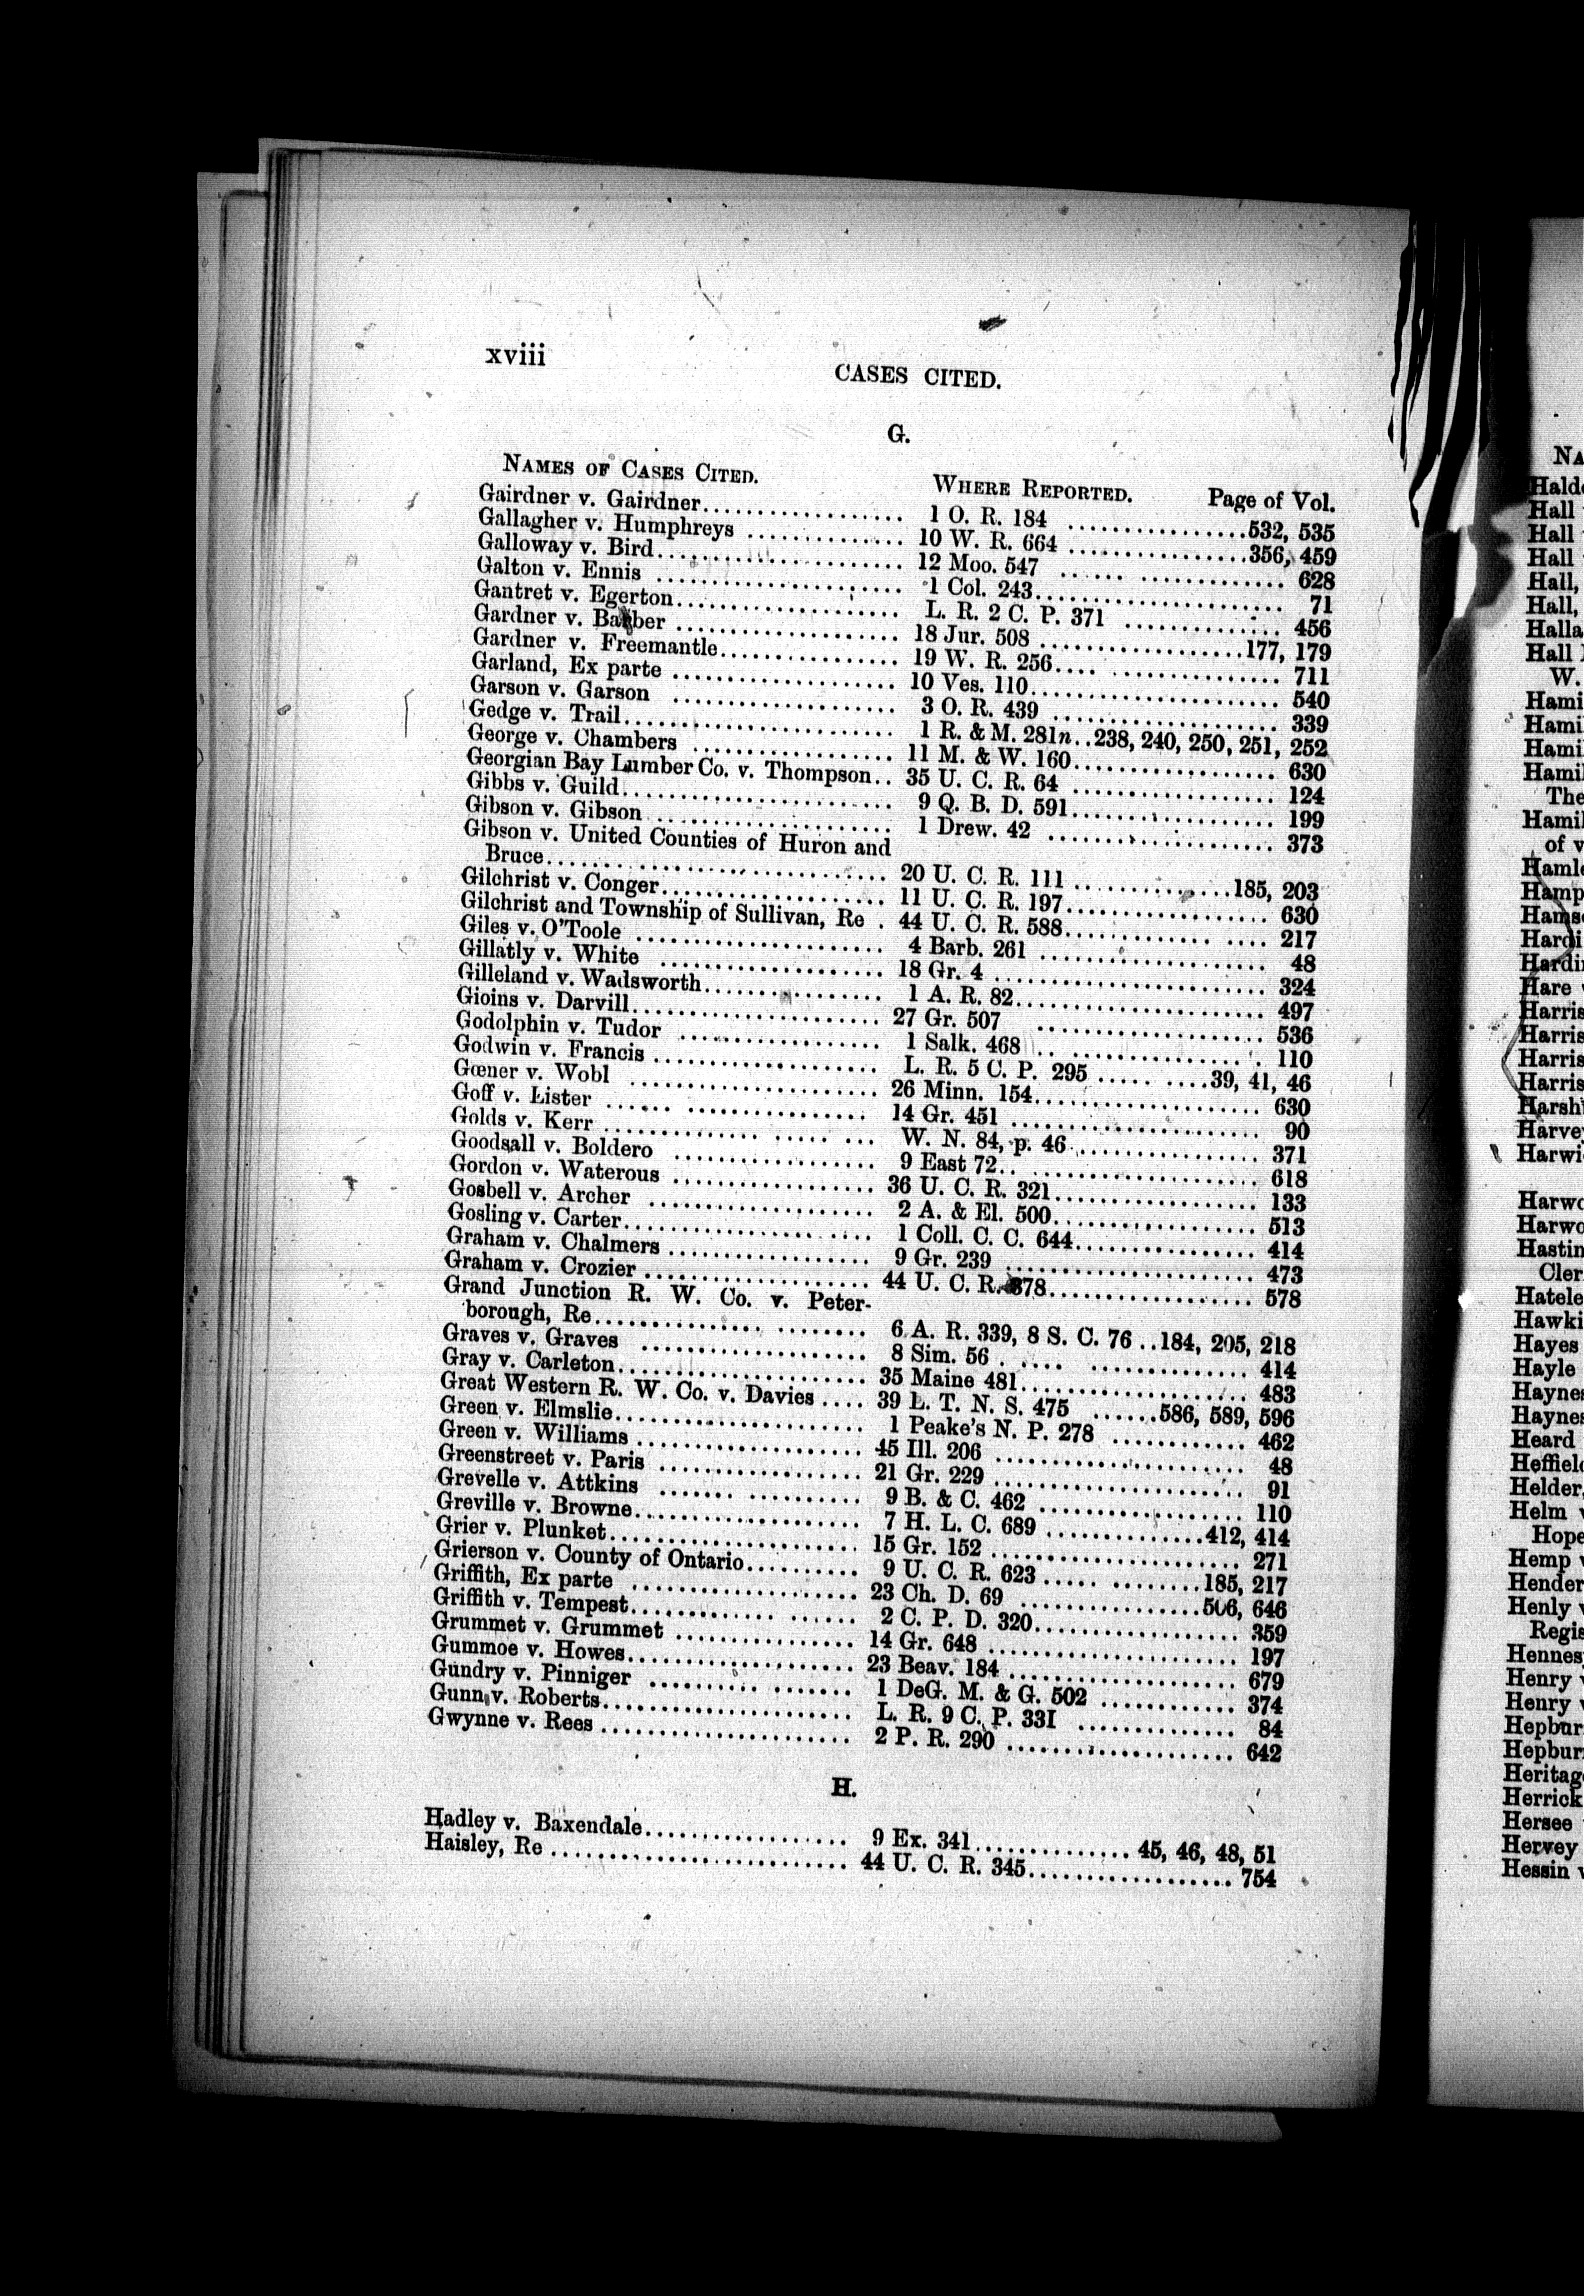 xviii
CASES CITED.
G.
NAMES OF CASES CITED. WHERE REPORTED. Page of Vol.
Gairdner v. Gairdner.................. 1 O. R. 184 ................532, 535
Gallagher v. Humphreys .............. 10 W. R. 664 ................356, 459
Galloway v. Bird...................... 12 Moo. 547 .................... 628
Galton v. Ennis ...................... 1 Col. 243...................... 71
Gantret v. Egerton.................... L. R. 2 C. P. 371 .............. 456
Gardner v. Barber .................... 18 Jur. 508 ..................177, 179
Gardner v. Freemantle................ 19 W. R. 256.................... 711
Garland, Ex parte .................... 10 Ves. 110...................... 540
Garson v. Garson .................... 3 O. R. 439 .................... 339
Gedge v. Trail........................ 1 R. & M. 281n..238, 240, 250, 251, 252
George v. Chambers .................. 11 M. & W. 160.................. 630
Georgian Bay Lumber Co. v. Thompson.. 35 U. C. R. 64 .................. 124
Gibbs v. Guild........................ 9 Q. B. D. 591.................. 199
Gibson v. Gibson .................... 1 Drew. 42 .................... 373
Gibson v. United Counties of Huron and
Bruce.............................. 20 U. C. R. 111 ..............185, 203
Gilchrist v. Conger.................... 11 U. C. R. 197.................. 630
Gilchrist and Township of Sullivan, Re . 44 U. C. R. 588.................. 217
Giles v. O'Toole ...................... 4 Barb. 261 .................... 48
Gillatly v. White .................... 18 Gr. 4 ........................ 324
Gilleland v. Wadsworth................ 1 A. R. 82...................... 497
Gioins v. Darvill...................... 27 Gr. 507 .................... 536
Godolphin v. Tudor .................. 1 Salk. 468 .................... 110
Godwin v. Francis .................... L. R. 5 C. P. 295 ..........39, 41, 46
Gœner v. Wobl ...................... 26 Minn. 154.................... 630
Goff v. Lister ...................... 14 Gr. 451 ...................... 90
Golds v. Kerr ...................... W. N. 84, p. 46.................. 371
Goodsall v. Boldero .................. 9 East 72...................... 618
Gordon v. Waterous .................. 36 U. C. R. 321.................. 133
Gosbell v. Archer .................... 2 A. & El. 500.................. 513
Gosling v. Carter...................... 1 Coll. C. C. 644................ 414
Graham v. Chalmers .................. 9 Gr. 239 ...................... 473
Graham v. Crozier .................... 44 U. C. R. 378.................. 578
Grand Junction R. W. Co. v. Peter-
borough, Re........................ 6 A. R. 339, 8 S. C. 76 ..184, 205, 218
Graves v. Graves .................... 8 Sim. 56 .................... 414
Gray v. Carleton...................... 35 Maine 481.................... 483
Great Western R. W. Co. v. Davies .... 39 L. T. N. S. 475 ......586, 589, 596
Green v. Elmslie...................... 1 Peake's N. P. 278 ............ 462
Green v. Williams .................... 45 Ill. 206 ...................... 48
Greenstreet v. Paris .................. 21 Gr. 229 ...................... 91
Grevelle v. Attkins .................. 9 B. & C. 462 .................. 110
Greville v. Browne.................... 7 H. L. C. 689 ..............412, 414
Grier v. Plunket...................... 15 Gr. 152 ...................... 271
Grierson v. County of Ontario.......... 9 U. C. R. 623 ..............185, 217
Griffith, Ex parte .................... 23 Ch. D. 69 ................506, 646
Griffith v. Tempest.................... 2 C. P. D. 320.................. 359
Grummet v. Grummet ................ 14 Gr. 648 ...................... 197
Gummoe v. Howes.................... 23 Beav. 184 .................... 679
Gundry v. Pinniger .................. 1 DeG. M. & G. 502 ............ 374
Gunn v. Roberts...................... L. R. 9 C. P. 331 .............. 84
Gwynne v. Rees ...................... 2 P. R. 290 .................... 642
H.
Hadley v. Baxendale.................. 9 Ex. 341..............45, 46, 48, 51
Haisley, Re .......................... 44 U. C. R. 345.................. 754
NA
Halde
Hall
Hall
Hall
Hall,
Hall,
Halla
Hall
W.
Hami
Hamil
Hamil
Hamil
The
Hamil
of v
Hamle
Hamp
Hamso
Hardi
Hardin
Hare
Harris
Harris
Harris
Harris
Harsh
Harvey
Harwi
Harwo
Harwo
Hastin
Cler
Hatele
Hawki
Hayes
Hayle
Haynes
Haynes
Heard
Heffield
Helder,
Helm v
Hope
Hemp v
Hender
Henly v
Regis
Hennes
Henry v
Henry v
Hepbur
Hepbur
Heritage
Herrick
Hersee
Hervey
Hessin v